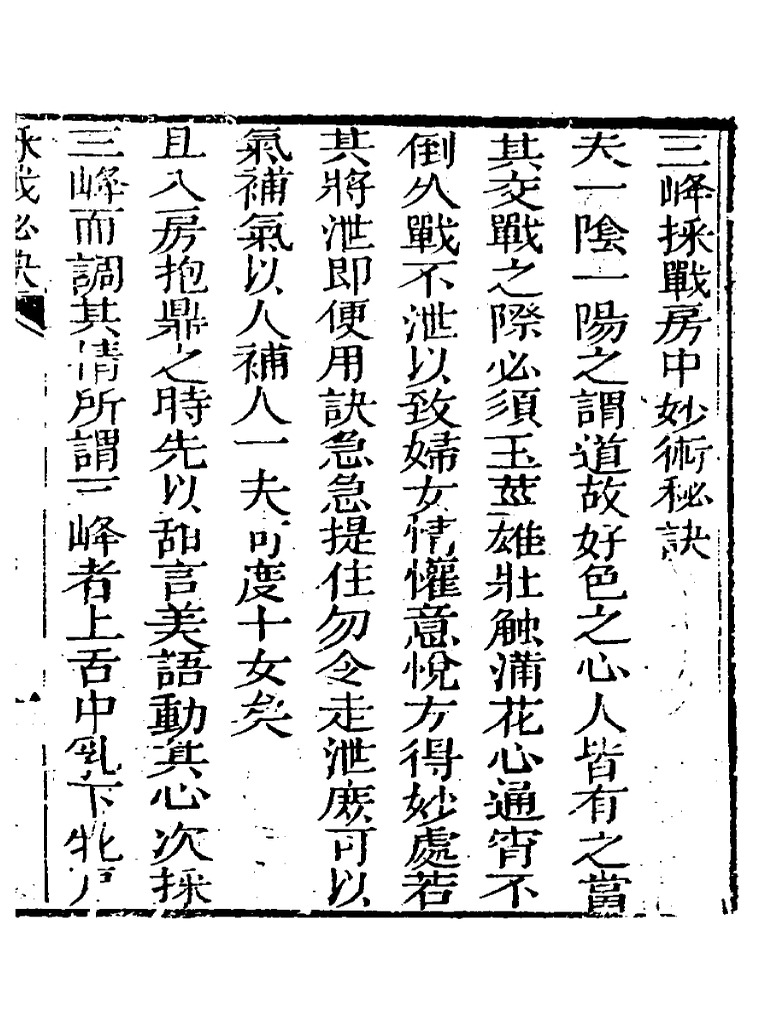 三峰採戰房中妙術秘訣
夫一陰一陽之謂道故好色之心人皆有之當
其交戰之際必須玉莖雄壯触滿花心通宵不
倒久戰不泄以致婦女情懽意悅方得妙處若
其將泄即便用訣急急提住勿令走泄庶可以
氣補氣以人補人一夫可度十女矣
且入房抱鼎之時先以甜言美語動其心次採
三峰而調其情所謂三峰者上舌中乳下牝户
採戰必決
一